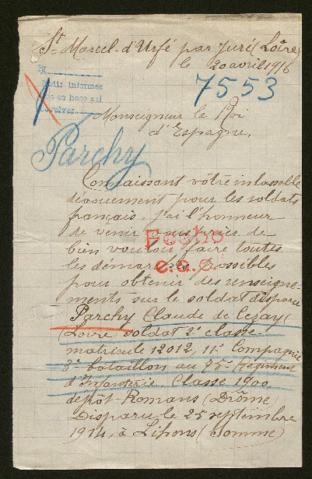 St Marcel-d'Urfé par Juré (Loire)
le 20 avril 1916
7553
Pedir informes
Monseigneur le Roi
d'Espagne,
Parchy
Connaissant vôtre inlassable
dévouement pour les soldats
français. J'ai l'honneur
de venir vous prier de
bien vouloir faire toutes
Hecho
les démarches possibles
pour obtenir des renseigne-
ments sur le soldat disparu
Parchy Claude de Cezay (
Loire soldat 2e classe
matricule 12012, 11e Compagnie
3e bataillon au 75e Régiment
d'Infanterie. Classe 1900.
dépôt-Romans (Drôme)
Disparu le 25 septembre
1914, à Lihons (Somme)